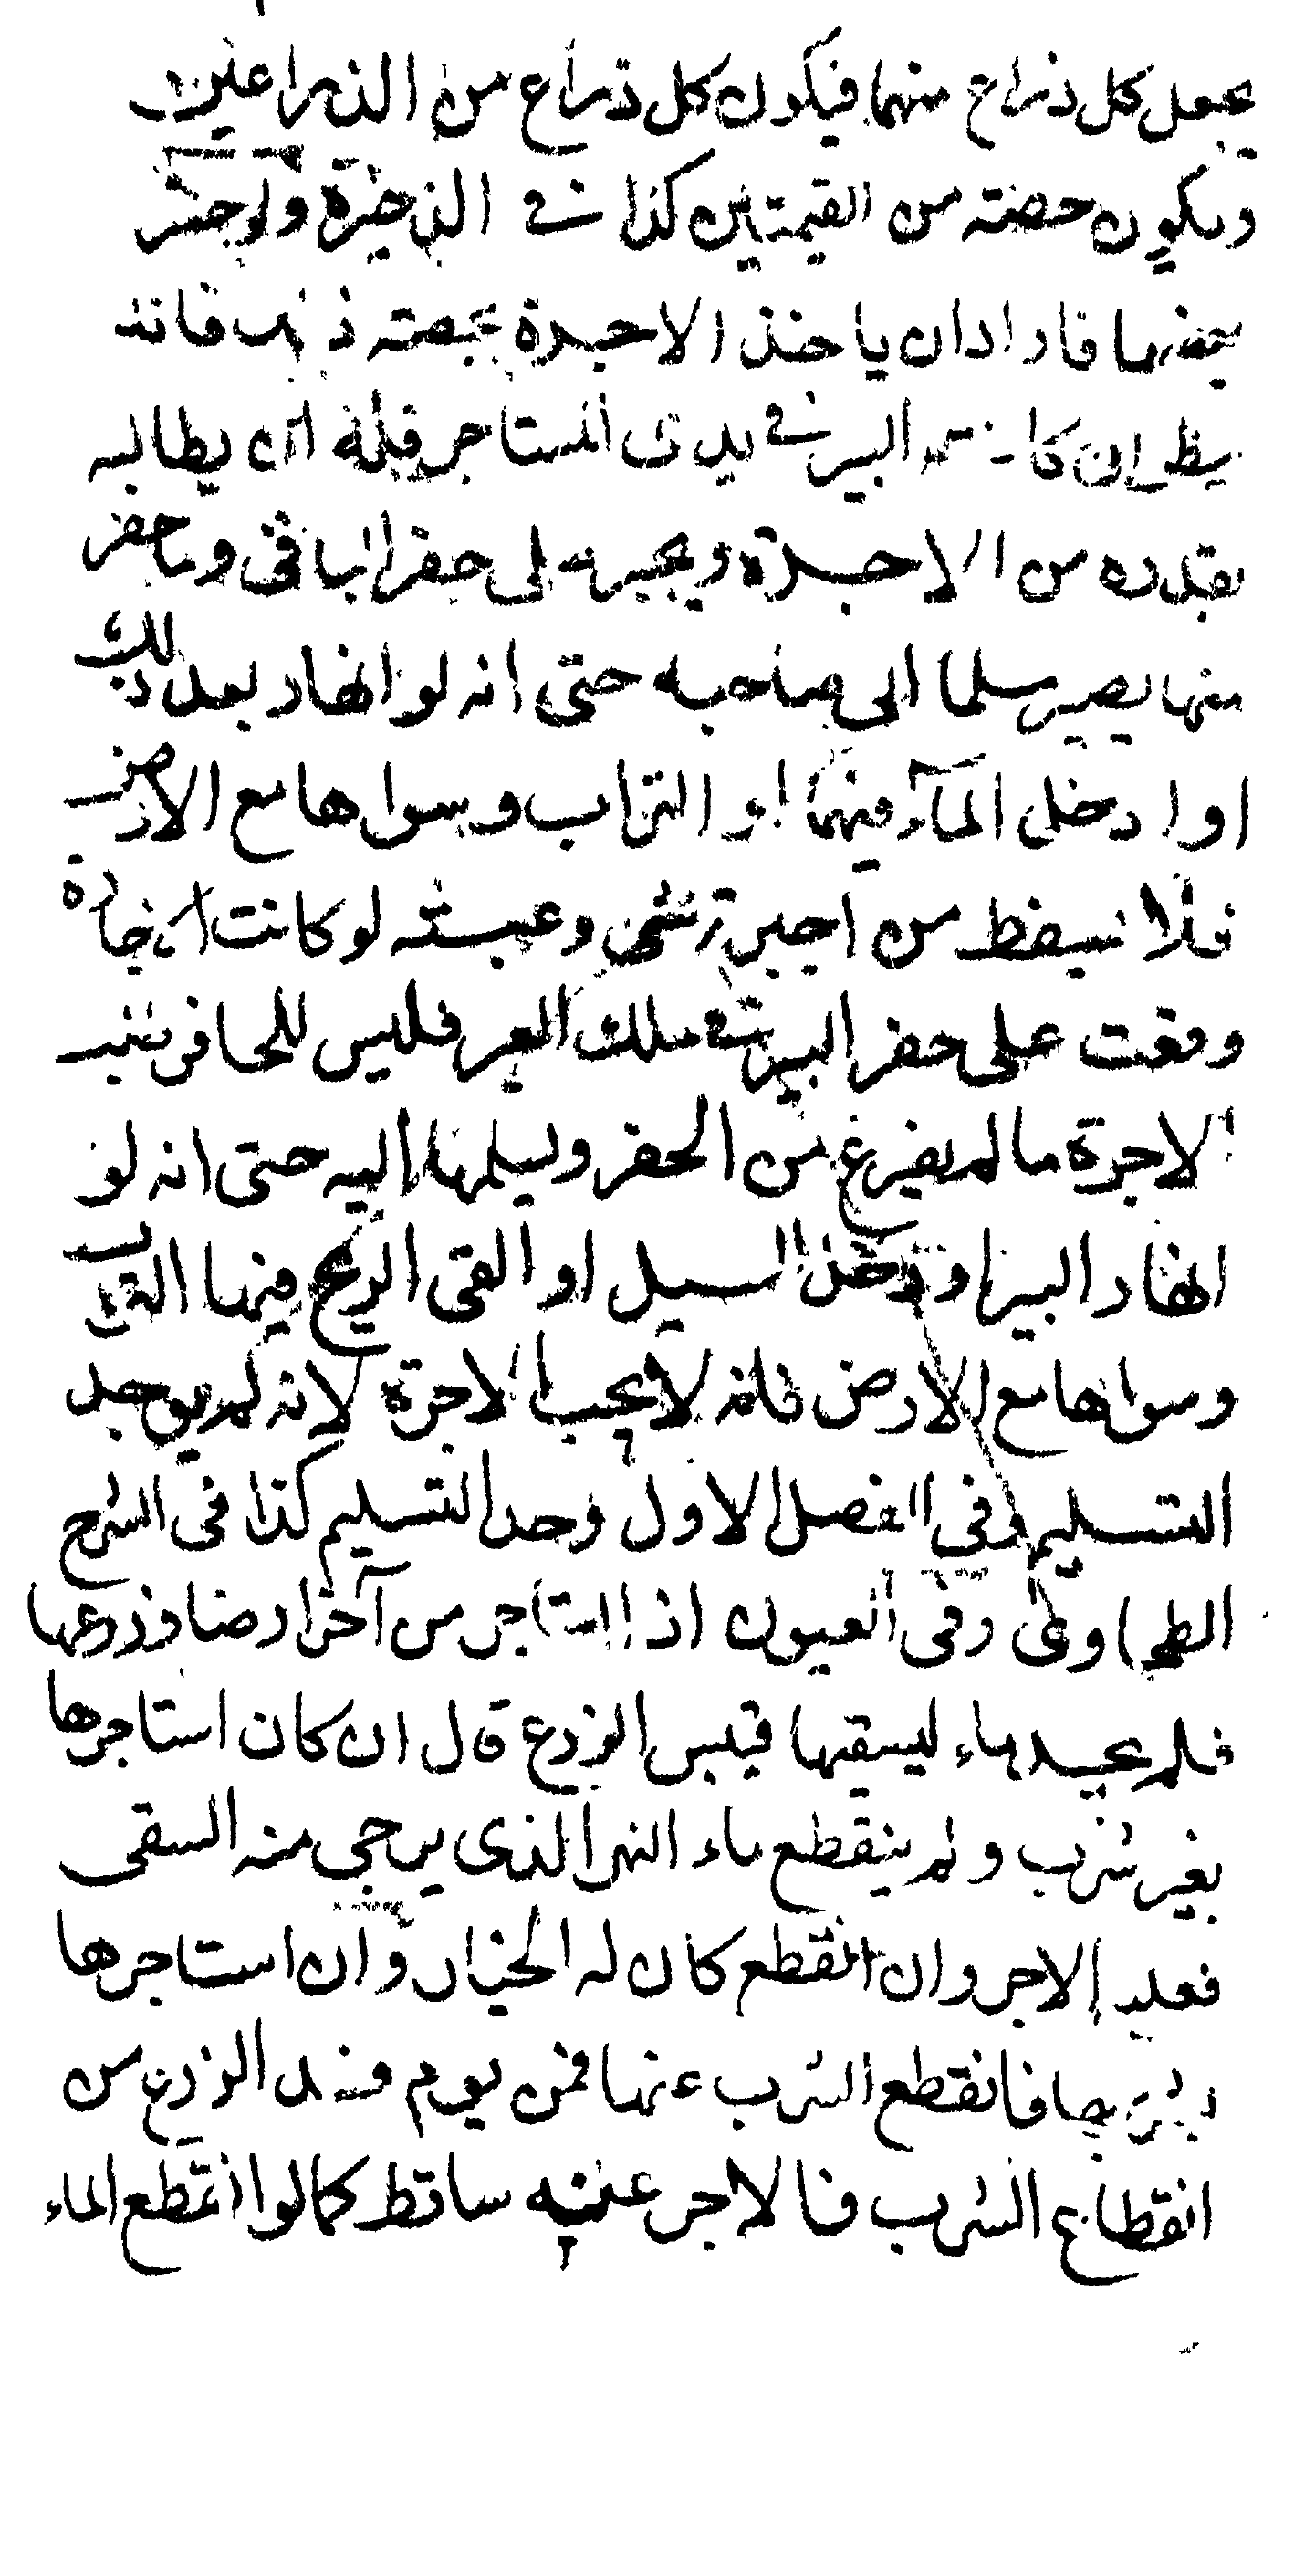 يجعل كل ذراع منهما فيكون كل ذراع من الذراعين
ويكون حصته من القيمتين كذا في الذخيرة ولو حفر
بعضها فاراد ان ياخذ الاجرة بحصته ذلك فانه
ينظر ان كانت البير في يدى المستاجر فله ان يطالبه
بقدره من الاجرة ويجبر على حفر الباقى وما حفر
منها يصير مسلما الى صاحبه حتى انه لو انهار بعد ذلك
او ادخل المآء فيهما او التراب وسواها مع الارض
فلا يسقط من اجير شى وعبسه لو كانت الاجارة
وقعت على حفر البير في ملك الغير فليس للحافر
الاجرة ما لم يفرغ من الحفر ويسلمها اليه حتى انه لو
انهار البير او دخل السيل او القى الريح فيها التراب
وسواها مع الارض فانه لا يجب الاجرة لانه لم يوجد
التسليم وفي الفصل الاول وجد التسليم كذا فى الشرح
الطحاوى وفى العيون اذا استاجر من آخر ارضا وزرعها
فلم يجد ماء ليسقيها فيبس الزرع قال ان كان استاجرها
بغير شرب ولم ينقطع ماء النهر الذى يرجى منه السقى
فعليه الاجر وان انقطع كان له الخيار وان استاجرها
بشربها فانقطع الشرب عنها فمن يوم فسد الزرع من
انقطاع الشرب فالاجر عنه ساقط كما لو انقطع الماء